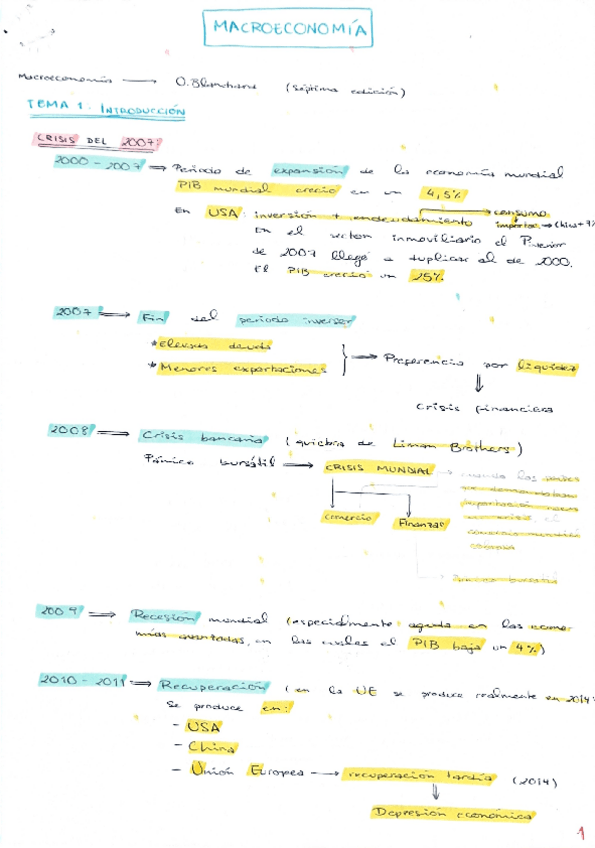 MACROECONOMÍA
Macroeconomía → O. Blanchard (séptima edición)
TEMA 1: INTRODUCCIÓN
CRISIS DEL 2007:
2000 - 2007 ⇒ Periodo de expansión de la economía mundial
PIB mundial creció en un 4,5%
En USA: inversión + endeudamiento → consumo
importac. →
En el sector inmoviliario el
de 2007 llegó a duplicar al de 2000.
El PIB creció un 25%
2007 ⇒ Fin del periodo inversor
* Elevada deuda
* Menores exportaciones
→ Preferencia por liquidez
⇓
Crisis financiera
2008 ⇒ Crisis bancaria (quiebra de Liman Brothers)
Pánico bursátil ⇒ CRISIS MUNDIAL → cuando los países
que
exportación
en crisis, el
comercio mundial
comercio Finanzas
2009 ⇒ Recesión mundial (especialmente aguda en las econo-
mías avanzadas, en las cuales el PIB baja un 4%)
2010 - 2011 ⇒ Recuperación (en la UE se produce realmente en 2014)
Se produce en:
- USA
- China
- Unión Europea → recuperación tardía (2014)
↓
Depresión económica
1